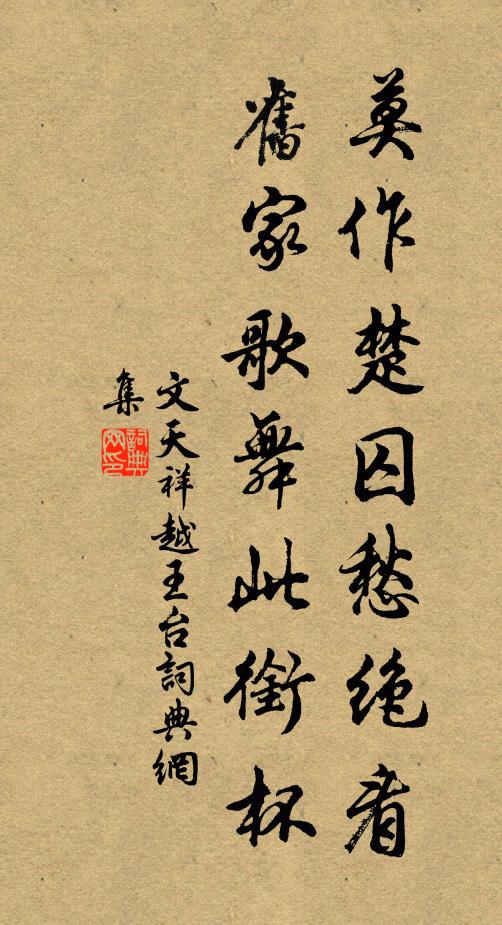 莫作楚囚愁絶看
舊家歌舞此銜杯
文天祥越王台詞典網
集
詞典網印